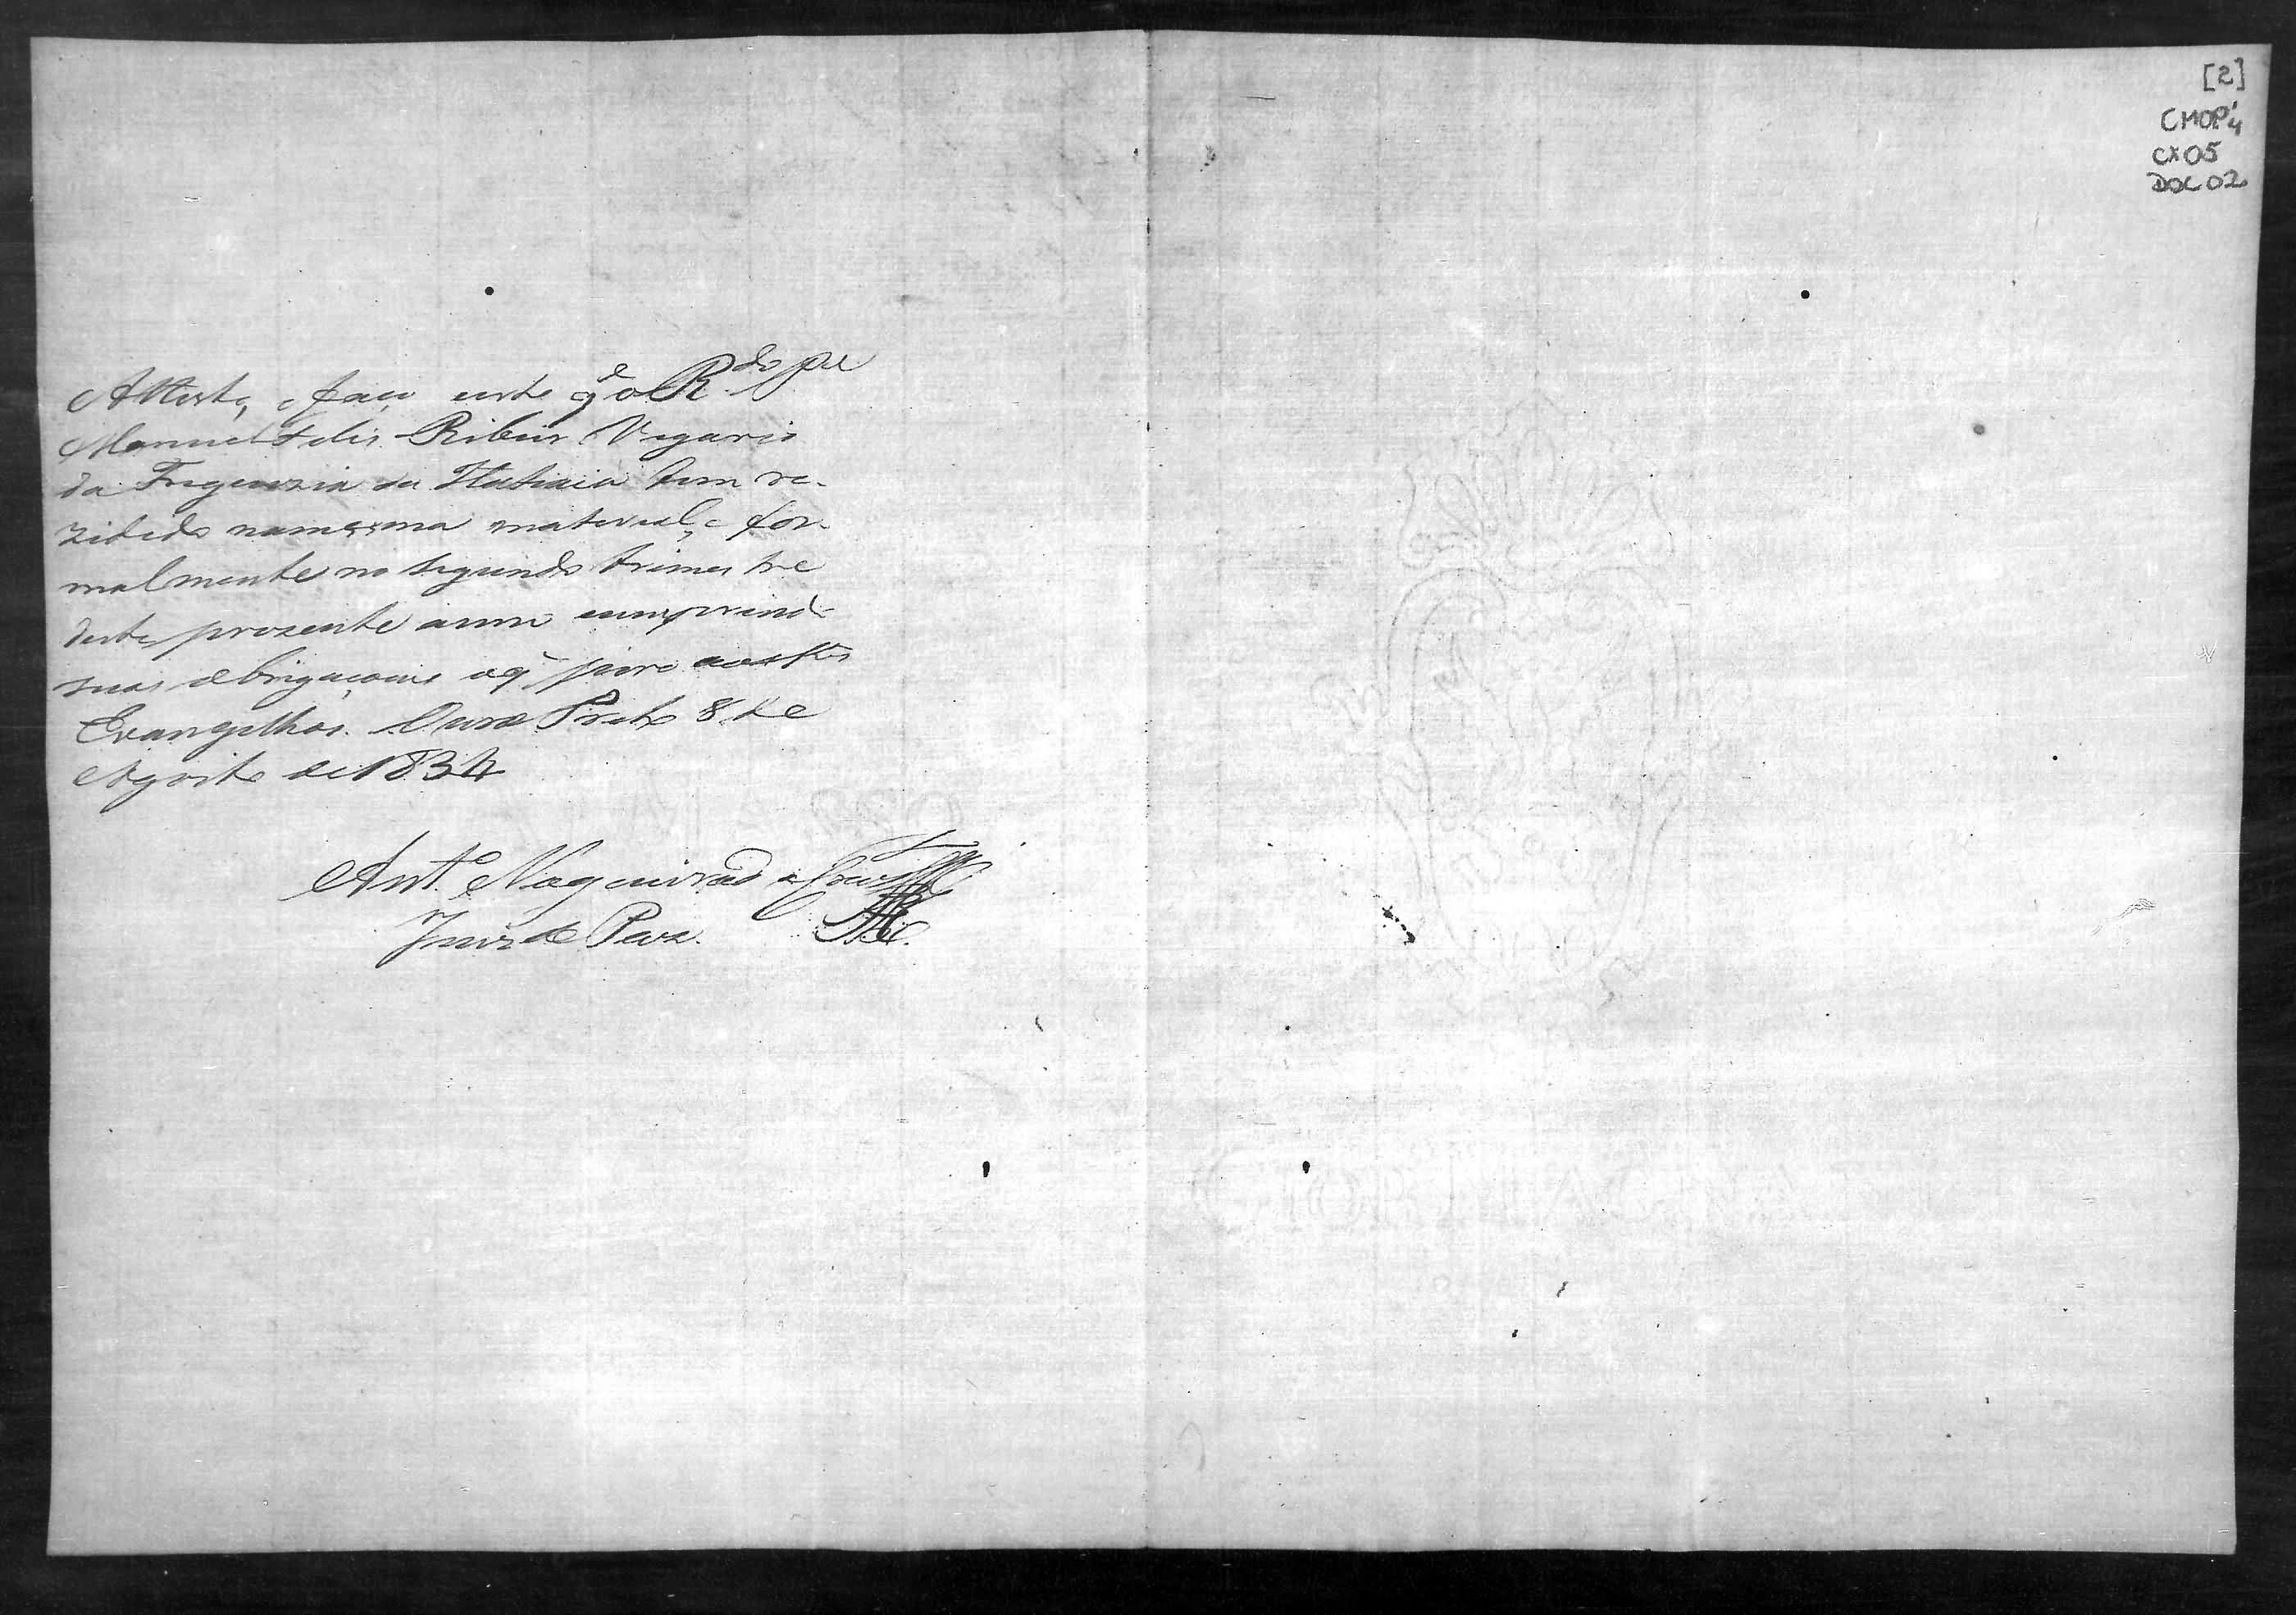 [2]
CMOP
CX05
DOC 02
Attesto, e faço certo q̃ o R.do Pe
Manuel Felis Ribeiro Vigario
da Freguezia da Itatiaia tem re-
zidido na mesma material, e for-
malmente no segundo trimestre
deste prezente anno cumprindo
suas obrigaçoens o q̃ juro aos Stos
Evangelhos. Ouro Preto 8 de
Agosto de 1834
Ant.o Nogueira da Cruz
Juiz de Paz.